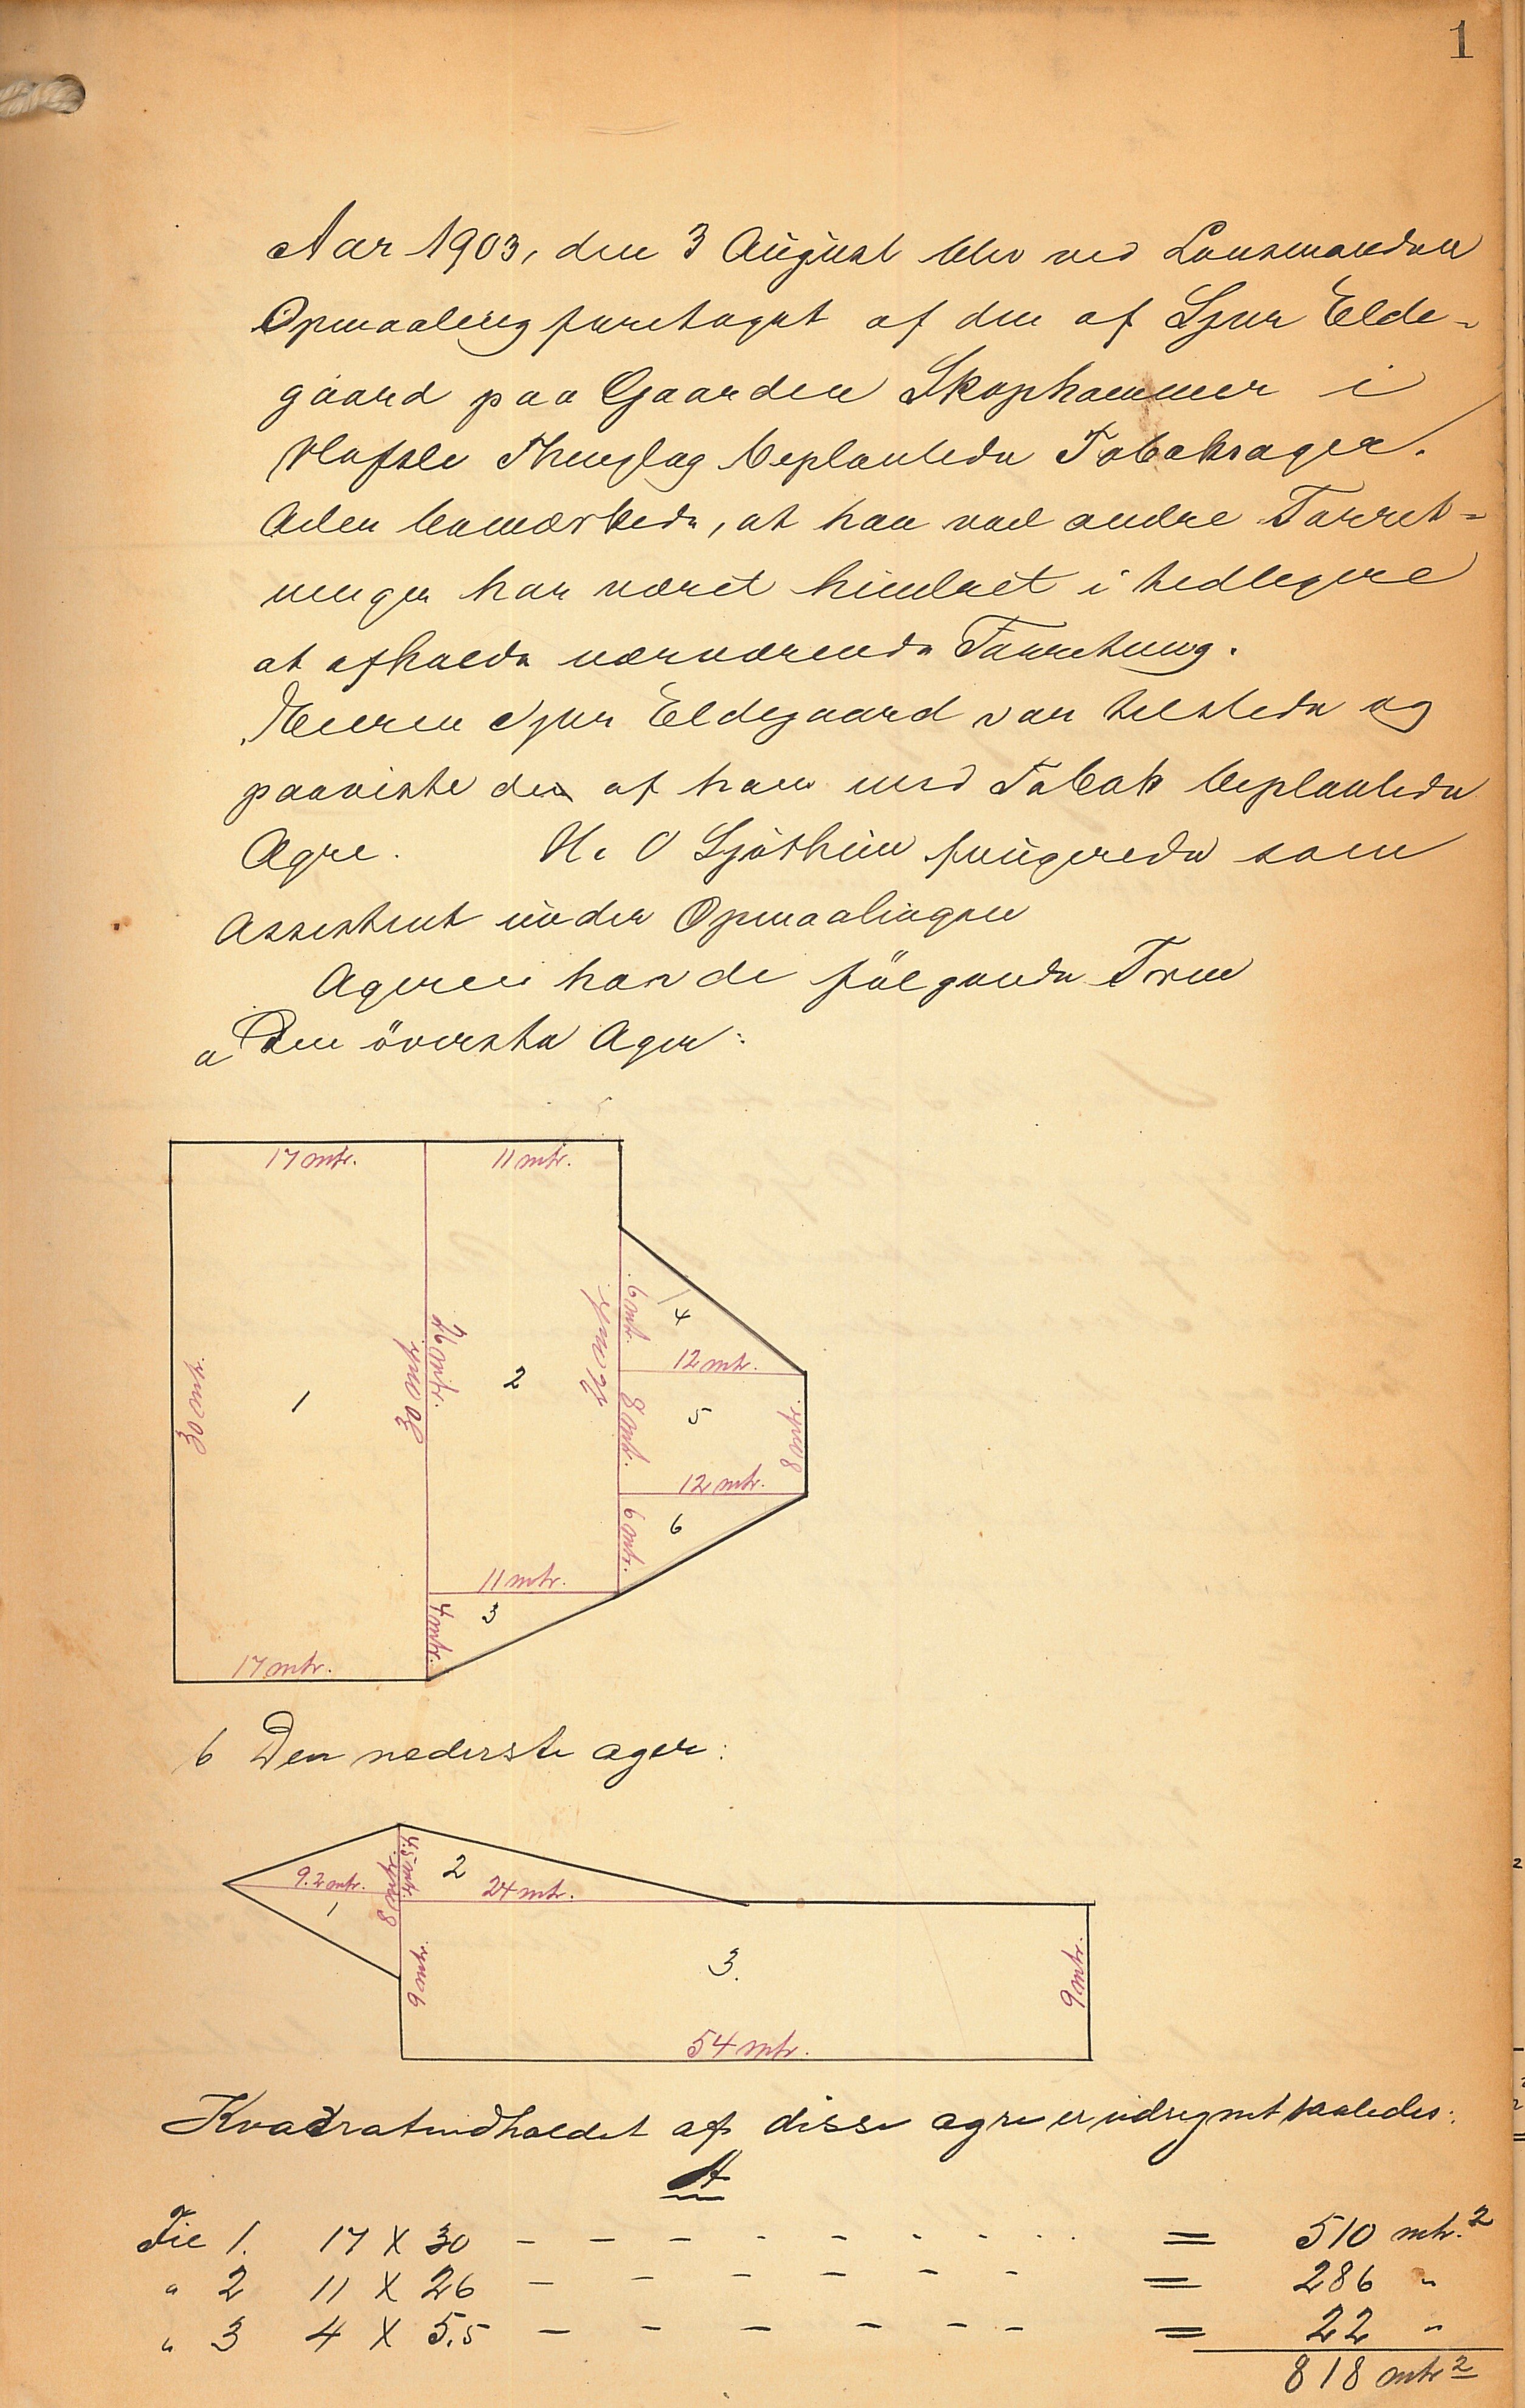 1
Aar 1903, den 3 August blev ved Lensmanden
Opmaaling foretaget af den af Sjur Elde-
gaard paa Gaarden Skophammer i
Hafslo Thinglag beplantede Tabaksager.
bemærkede, at han ved andre Forret-
ninger har været hindret i tidligere
at afholde nærværende Forretning.
Eieren Sjur Eldegaard var tilstede og
paaviste den af ham med Tabak beplantede
Agre. H. O Sjøthun fungerede som
Assistent under Opmaalingen
Ageren havde følgende Form
a Den øverste Ager:
17 mtr. 11 mtr.
30 mtr. 1 30 mtr. 26 mtr. 2 26 mtr. 6 mtr. 4
12 mtr.
8 mtr. 5 8 mtr.
12 mtr.
6 mtr. 6
11 mtr.
4 mtr. 3
17 mtr.
b Den nederste ager:
9.2 mtr. 1 8 mtr. 4.5 mtr. 2 24 mtr.
9 mtr. 3. 9 mtr.
54 mtr.
Kvadratindholdet af disse agre er udregnet saaledes:
A
Fic 1. 17 X 30 - - - - - - - - - = 510 mtr.2
" 2 11 X 26 - - - - - - - = 286 "
" 3 4 X 5.5 - - - - - - - = 22 "
818 mtr2